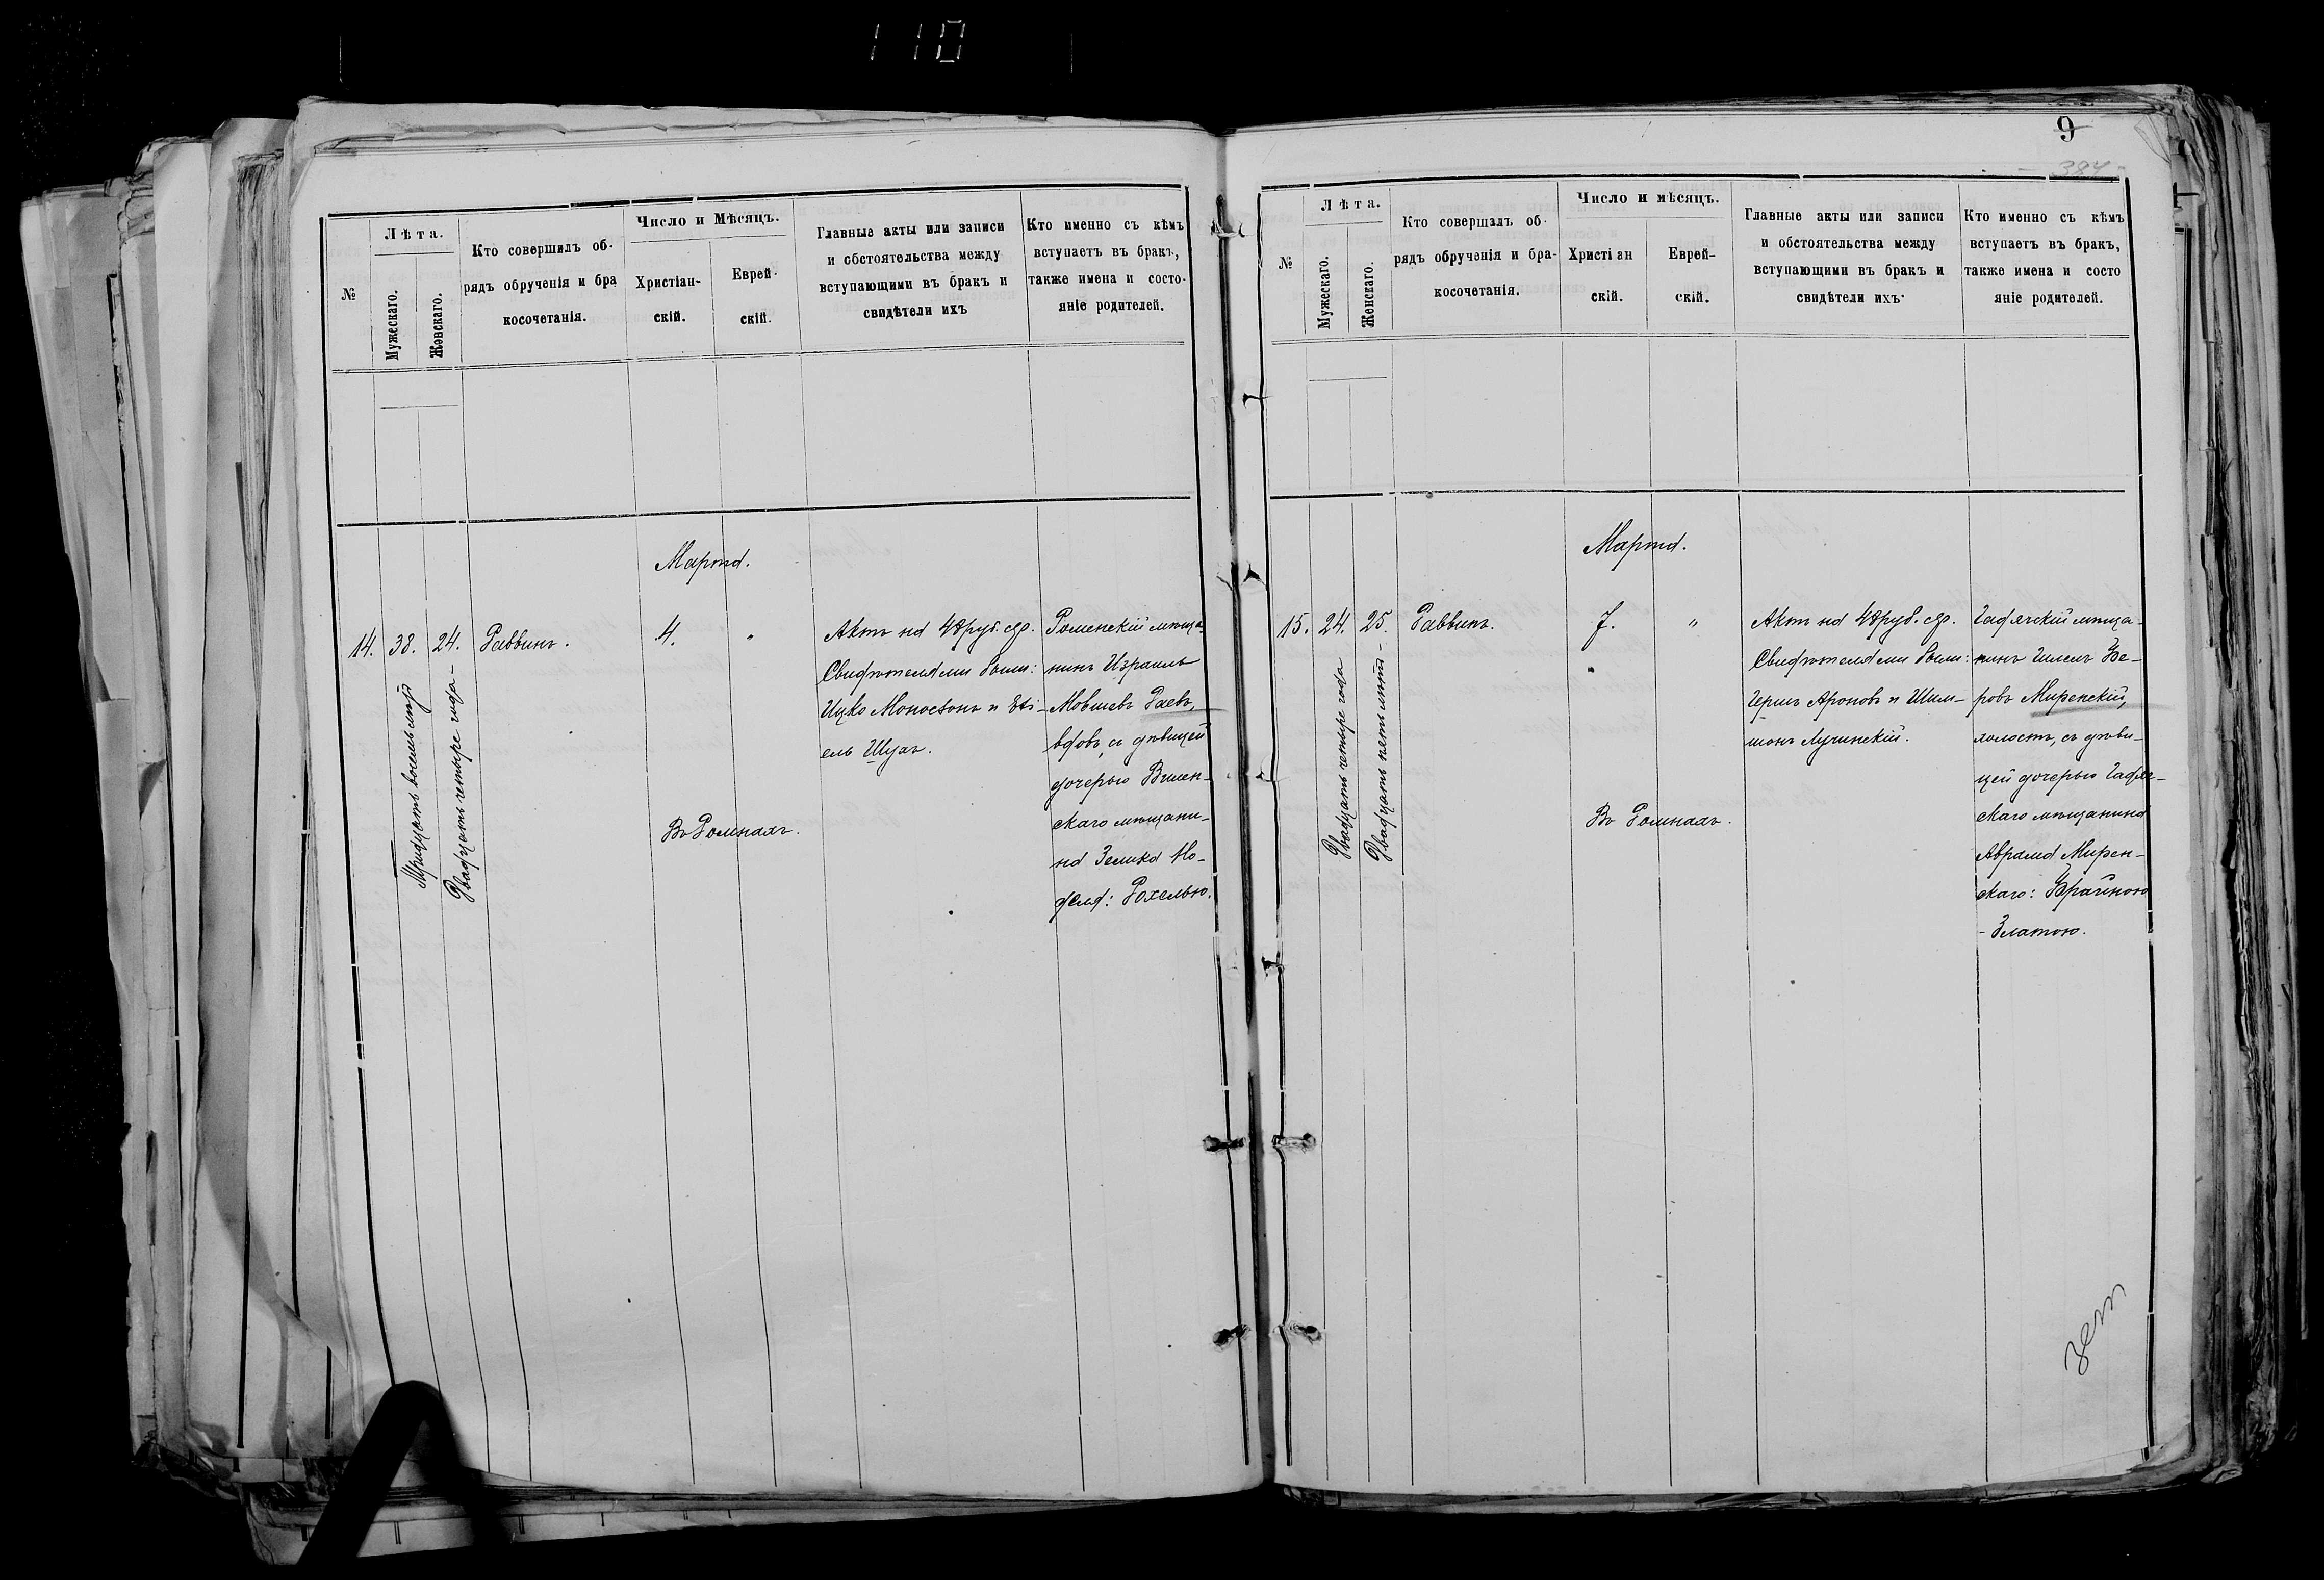 110
№
Лѣта.
Мужескаго.
Женскаго.
Кто совершилъ об-
рядъ обрученія и бра
косочетанія.
Число и Мѣсяцъ.
Христіан-
скій.
Еврей-
скій.
Главные акты или записи
и обстоятельства между
вступающими въ бракъ и
свидѣтели ихъ
Кто именно съ кѣмъ
вступаетъ въ бракъ,
также имена и состо-
яніе родителей.
Марта.
14.
38.
Тридцать восемь лѣтъ
24.
Двадцать четыре года
Раввинъ.
4.
"
Въ Ромнахъ.
Актъ на 48 руб. сер.
Свидѣтелями были:
Ицко Моносзонъ и
ель Шуях.
Роменскій мѣща-
нинъ Израиль
Мовшевъ Раевъ,
вдовъ, съ дѣвицей
дочерью Вилен-
скаго мѣщани-
на Зелика
Рохелью.
9
384
№
Лѣта.
Мужескаго.
Женскаго.
Кто совершалъ об-
рядъ обрученія и бра-
косочетанія.
Число и мѣсяцъ.
Христіан
скій.
Еврей-
скій.
Главные акты или записи
и обстоятельства между
вступающими въ бракъ и
свидѣтели ихъ
Кто именно съ кѣмъ
вступаетъ въ бракъ,
также имена и состо
яніе родителей.
Марта.
15.
24.
Двадцать четыре года
25.
Двадцать пять лѣтъ
Раввинъ.
7.
"
Въ Ромнахъ.
Актъ на 48 руб. сер.
Свидѣтелями были:
Гершъ Ароновъ и Шли-
монъ Лучинскій.
Гадячскій мѣща-
нинъ Шлемъ Бе-
ровъ Миренскій,
холостъ, съ дѣви-
цей дочерью Гадяч-
скаго мѣщанина
Абрама Мирен-
скаго: Брайною
-Златою.